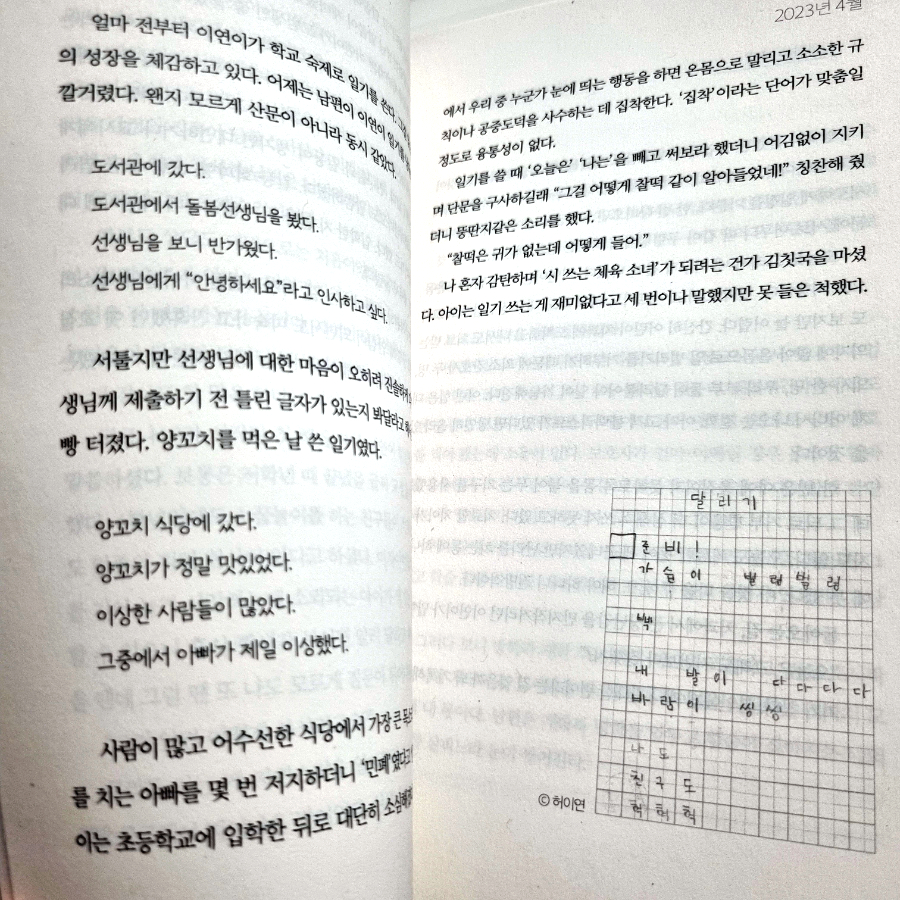 얼마 전부터 이연이가 학교 숙제로 일기를 쓴다.
의 성장을 체감하고 있다. 어제는 남편이 이연이 일기를
깔거렸다. 왠지 모르게 산문이 아니라 동시 같았다.
도서관에 갔다.
도서관에서 돌봄선생님을 봤다.
선생님을 보니 반가웠다.
선생님에게 “안녕하세요”라고 인사하고 싶다.
서툴지만 선생님에 대한 마음이 오히려
생님께 제출하기 전 틀린 글자가 있는지 봐달라고
빵 터졌다. 양꼬치를 먹은 날 쓴 일기였다.
양꼬치 식당에 갔다.
양꼬치가 정말 맛있었다.
이상한 사람들이 많았다.
그중에서 아빠가 제일 이상했다.
사람이 많고 어수선한 식당에서 가장 큰
를 치는 아빠를 몇 번 저지하더니 ‘민폐’였다고
이는 초등학교에 입학한 뒤로 대단히
2023년 4월
에서 우리 중 누군가 눈에 띄는 행동을 하면 온몸으로 말리고 소소한 규
칙이나 공중도덕을 사수하는 데 집착한다. ‘집착’이라는 단어가 맞춤일
정도로 융통성이 없다.
일기를 쓸 때 ‘오늘은’ ‘나는’을 빼고 써보라 했더니 어김없이 지키
며 단문을 구사하길래 “그걸 어떻게 찰떡 같이 알아들었네!” 칭찬해 줬
더니 뚱딴지같은 소리를 했다.
“찰떡은 귀가 없는데 어떻게 들어.”
나 혼자 감탄하며 ‘시 쓰는 체육 소녀’가 되려는 건가 김칫국을 마셨
다. 아이는 일기 쓰는 게 재미없다고 세 번이나 말했지만 못 들은 척했다.
달리기
준비!
가슴이 벌렁벌렁
빡
내 발이 다다다다
바람이 씽씽
나도
친구도
헉헉헉
© 허이연